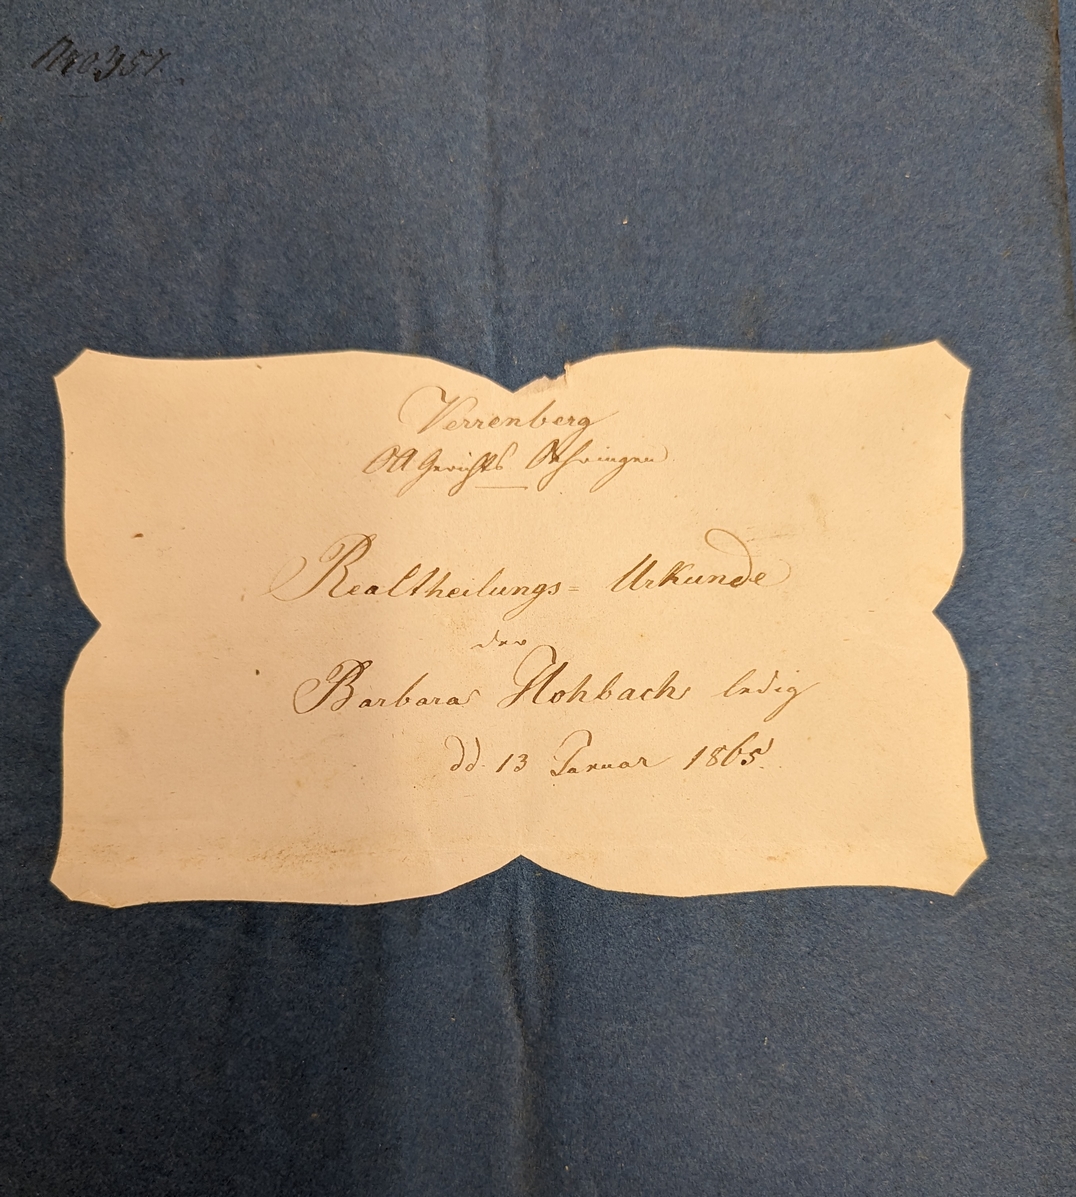 Nro 357.
Verrenberg
OA Gerichts Oehringen
Realtheilungs= Urkunde
der
Barbara Hohbach ledig
dd. 13 Januar 1865.